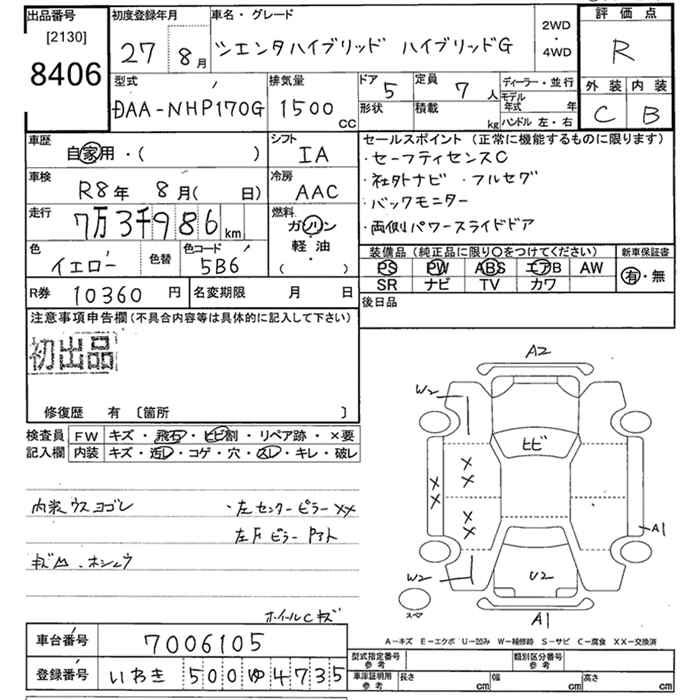 出品番号
[2130]
8406
初度登録年月
27 8月
車名・グレード
シエンタハイブリッド ハイブリッドG
2WD
・
4WD
評価点
R
外装 内装
C B
型式
DAA-NHP170G
排気量
1500
CC
ドア
5
定員
7 人
形状
積載
kg
ディーラー・並行
モデル
年式 年
ハンドル 左・右
車歴
自家用・( )
シフト
IA
車検
R8年 8月( 日)
冷房
AAC
走行
7万3千986km
燃料
ガソリン
軽油
( )
色
イエロー
色替
色コード
5B6
R券
10360円
名変期限 月 日
セールスポイント (正常に機能するものに限ります)
・セーフティセンスC
・社外ナビ・フルセグ
・バックモニター
・両側パワースライドドア
装備品(純正品に限り○をつけてください)
PS PW ABS エアB AW
SR ナビ TV カワ
新車保証書
有・無
後日品
注意事項申告欄(不具合内容等は具体的に記入して下さい)
初出品
修復歴 有 〔箇所 〕
検査員
記入欄
FW キズ・飛石・ヒビ割・リペア跡・×要
内装 キズ・汚レ・コゲ・穴・スレ・キレ・破レ
内装ウスヨゴレ
・左センターピラーXX
左Fピラー
ホイールCキズ
A2
W2
ヒビ
X
X
X
X
X
X
A1
W2
U2
A1
スペア
A-キズ E-エクボ U-凹み W-補修跡 S-サビ C-腐食 XX-交換済
車台番号
7006105
登録番号
いわき 500ゆ4735
型式指定番号
参考
類別区分番号
参考
車庫証明用
参考
長さ cm
幅 cm
高さ cm